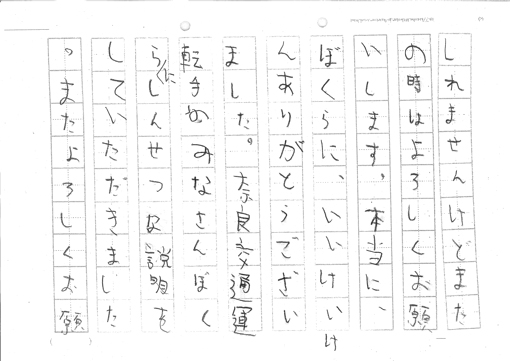 しれませんけどまた
の時はよろしくお願
いします。本当に、
ぼくらに、いいけいけ
んありがとうござい
ました。奈良交通運
転手かみなさんぼく
らにしんせつな説明を
していただきました
。またよろしくお願